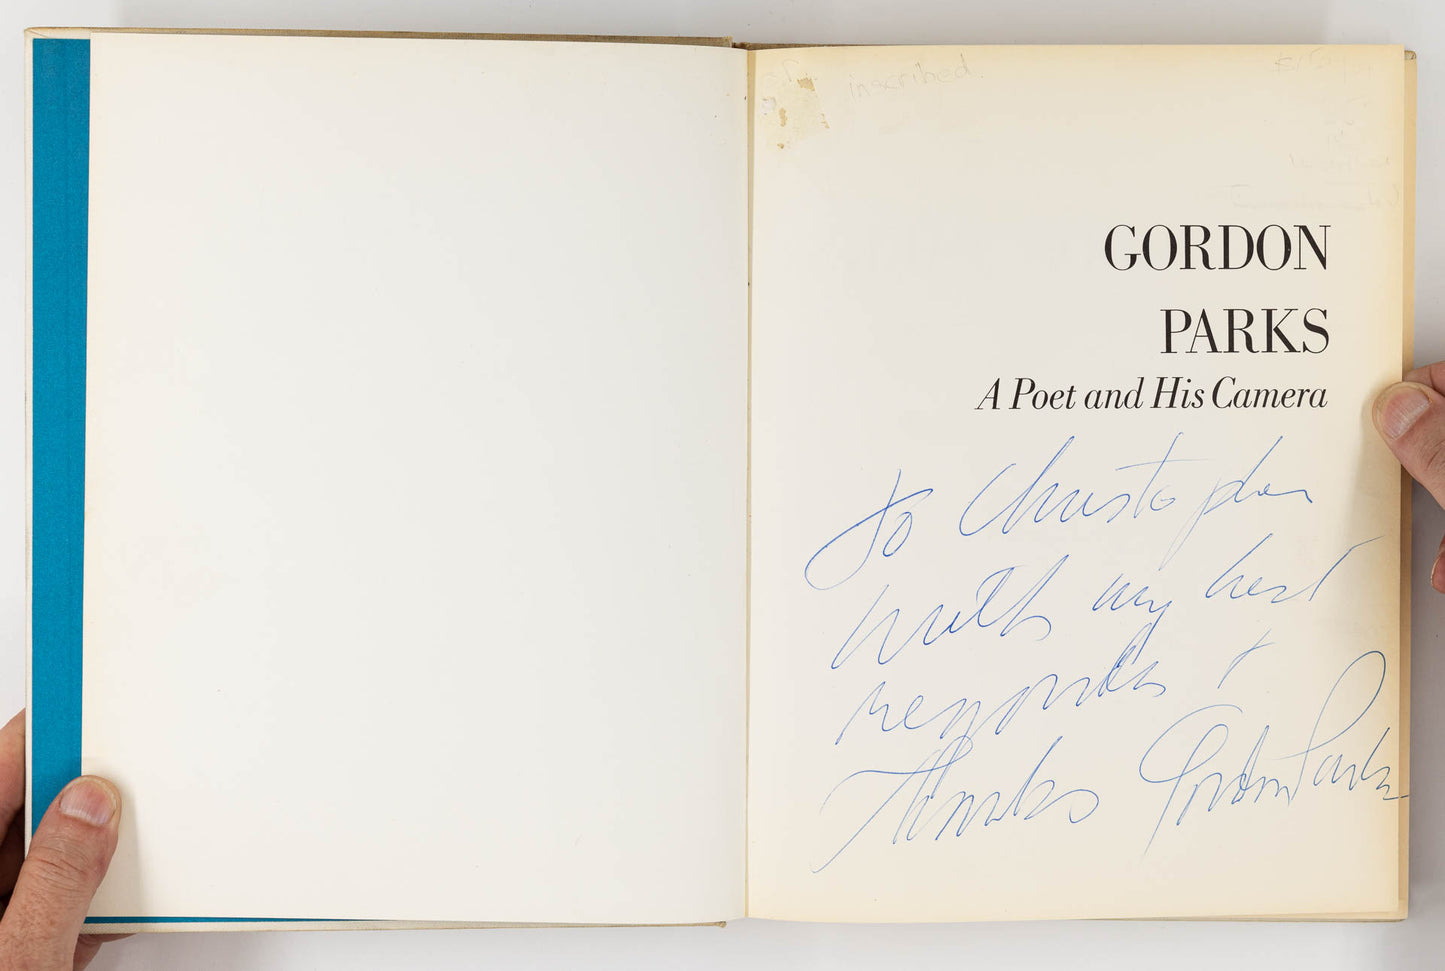 inscribed.
GORDON
PARKS
A Poet and His Camera
To Christopher
with my best
regards +
Thanks Gordon Parks